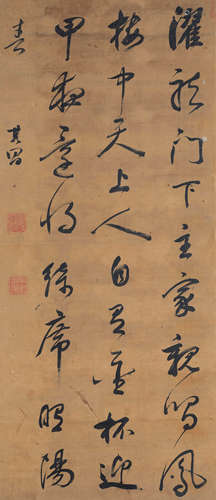 濯龍門下主家親鳴鳳
樓中天上人自有金杯迎
甲夜還將綺席陽
春
其昌